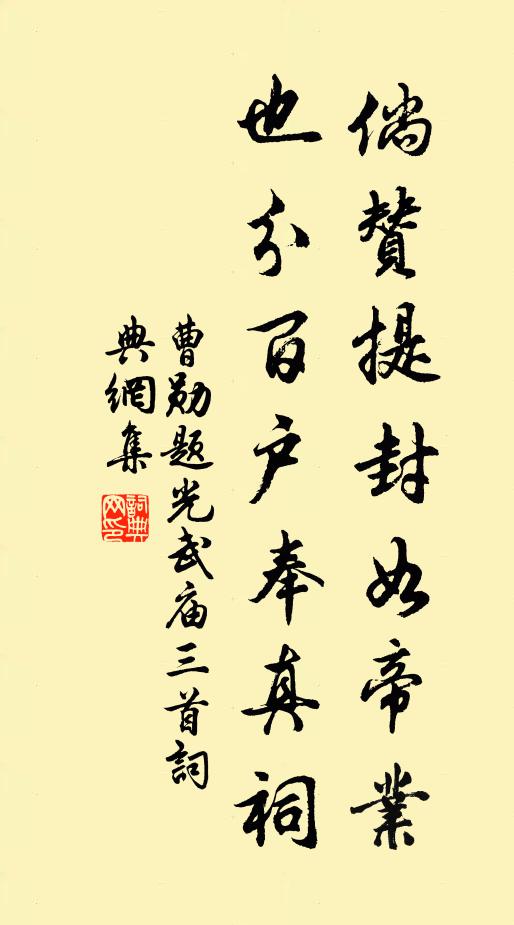 倘贊提封如帝業
也分百户奉真祠
曹勛題光武廟三首詞
典網集
詞典網印